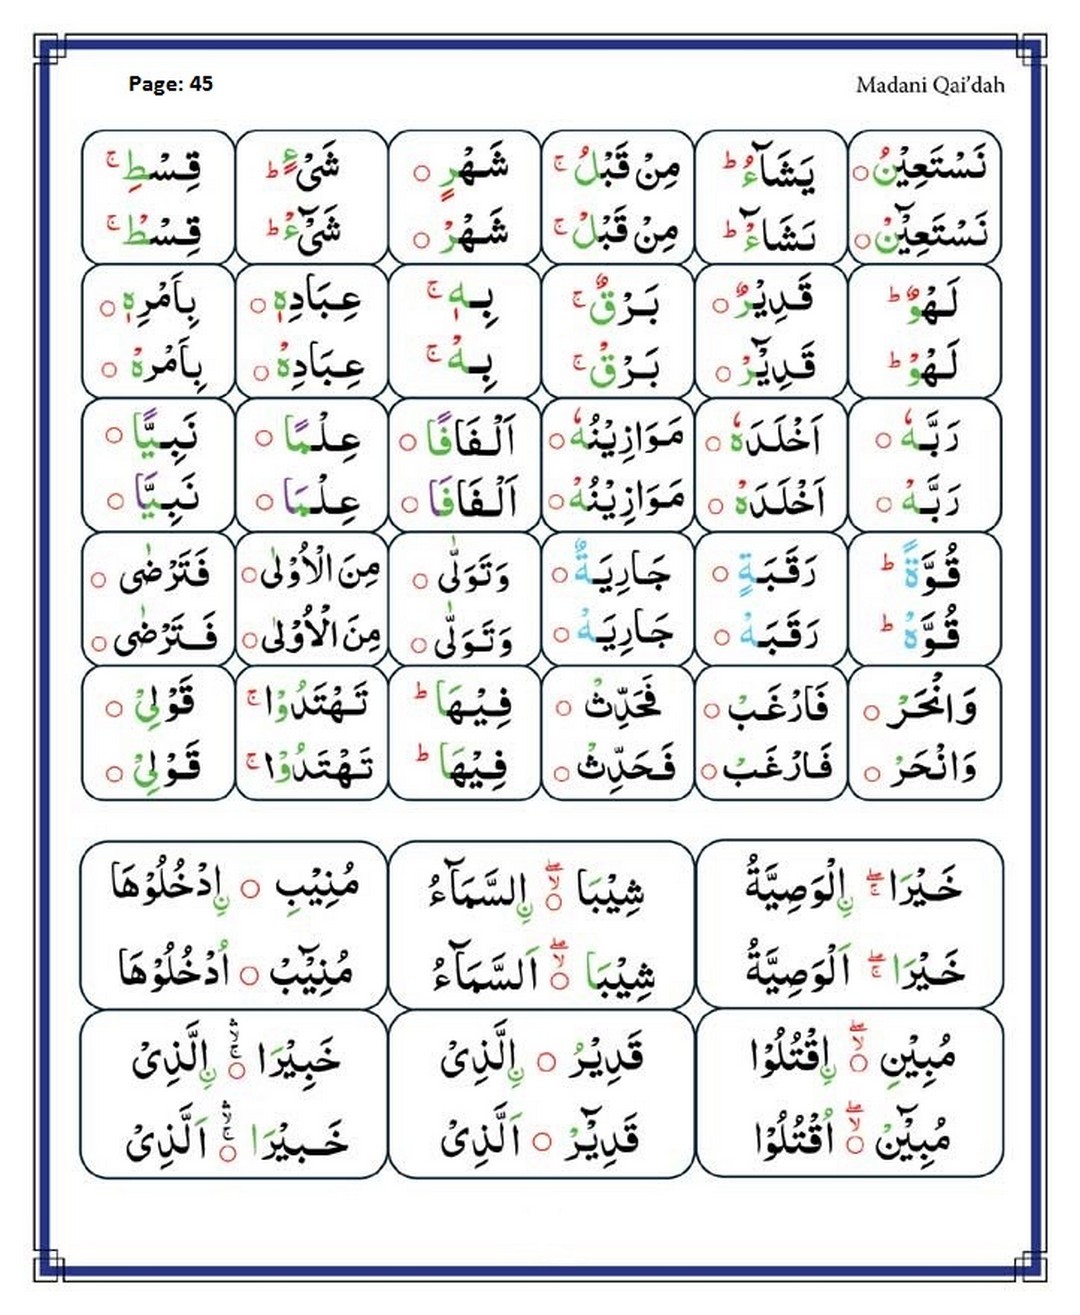 Page: 45
Madani Qai'dah
نَسْتَعِيْنُ ○ يَشَآءُ ؕ مِنْ قَبْلُ ۚ شَهْرٍ ○ شَیْءٍ ؕ قِسْطِ ۚ
نَسْتَعِيْٓنْ ○ يَشَآءْ ؕ مِنْ قَبْلْ ۚ شَهْرْ ○ شَیْٓءْ ؕ قِسْطْ ۚ
لَهْوٌ ؕ قَدِيْرٌ ○ بَرْقٌ ۚ بِهٖ ۚ عِبَادِهٖ ○ بِاَمْرِهٖ ○
لَهْوْ ؕ قَدِيْٓرْ ○ بَرْقْ ۚ بِهْ ۚ عِبَادِهْ ○ بِاَمْرِهْ ○
رَبَّهٗ ○ اَخْلَدَهٗ ○ مَوَازِيْنُهٗ ○ اَلْفَافًا ○ عِلْمًا ○ نَبِيًّا ○
رَبَّهْ ○ اَخْلَدَهْ ○ مَوَازِيْنُهْ ○ اَلْفَافَا ○ عِلْمَا ○ نَبِيَّا ○
قُوَّةً ؕ رَقَبَةٍ ○ جَارِيَةٌ ○ وَتَوَلّٰى ○ مِنَ الْاُوْلٰى ○ فَتَرْضٰى ○
قُوَّهْ ؕ رَقَبَهْ ○ جَارِيَهْ ○ وَتَوَلّٰى ○ مِنَ الْاُوْلٰى ○ فَتَرْضٰى ○
وَانْحَرْ ○ فَارْغَبْ ○ فَحَدِّثْ ○ فِيْهَا ؕ تَهْتَدُوْا ۚ قَوْلِیْ ○
وَانْحَرْ ○ فَارْغَبْ ○ فَحَدِّثْ ○ فِيْهَا ؕ تَهْتَدُوْا ۚ قَوْلِیْ ○
خَيْرَا ۚۖ نِ الْوَصِيَّةُ شِيْبَا ۙۖ○ نِ السَّمَآءُ مُنِيْبِ ○ نِ ادْخُلُوْهَا
خَيْرَا ۚۖ اَلْوَصِيَّةُ شِيْبَا ۙۖ○ اَلسَّمَآءُ مُنِيْٓبْ ○ اُدْخُلُوْهَا
مُبِيْنِ ۙۖ○ نِ اقْتُلُوْا قَدِيْرُ ○ نِ الَّذِیْ خَبِيْرَا ۙۚ○ نِ الَّذِیْ
مُبِيْٓنْ ۙۖ○ اُقْتُلُوْا قَدِيْٓرْ ○ اَلَّذِیْ خَبِيْرَا ۙۚ○ اَلَّذِیْ